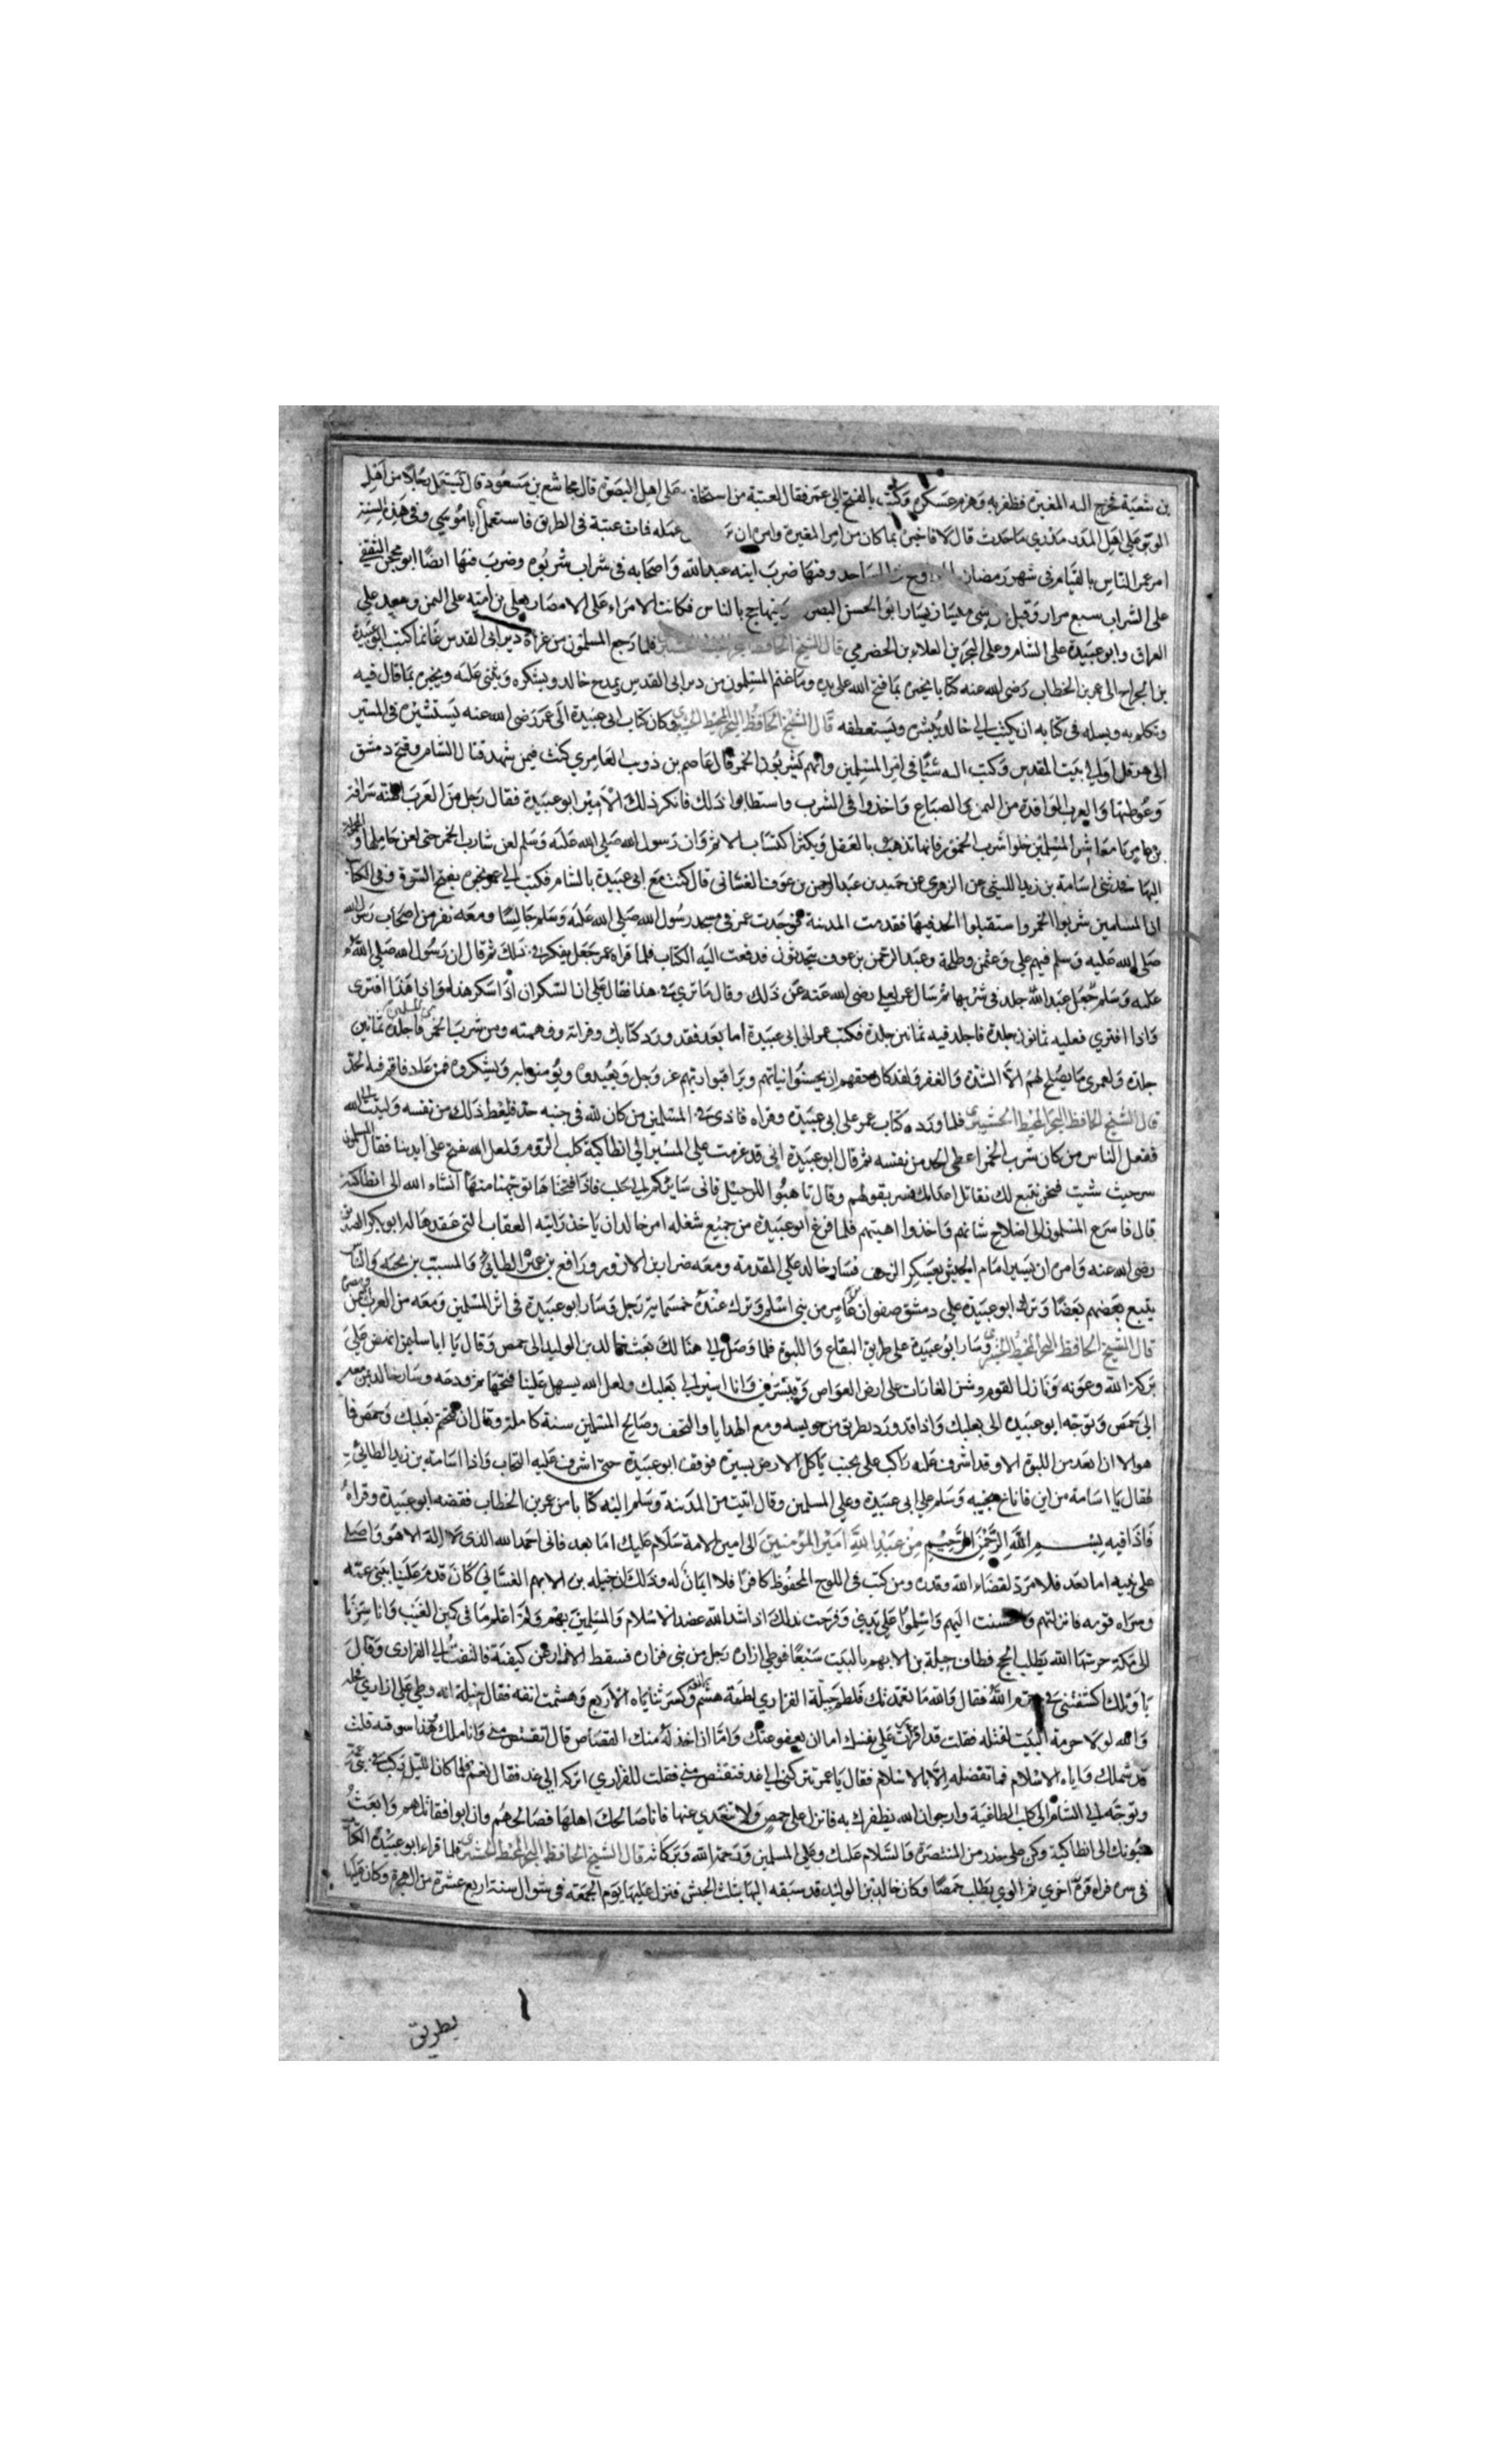 بن شعبة فخرج اليه المغيرة فظفر به وهزم عسكره وكتب بالفتح الى عمر فقال لعتبة من استخلفت على اهل البصرة قال مجاشع بن مسعود قال تستعمل رجلا من اهل
الوبر على اهل المدر تدري ما حدث قال لا فاخبره بما كان من امر المغيرة وامره ان عمله فمات عتبة في الطريق فاستعمل ابا موسى وفي هذه السنة
امر عمر الناس بالقيام في شهر رمضان المساجد وفيها ضرب ابنه عبد الله واصحابه في شراب شربوه وضرب فيها ايضا ابو محجن الثقفي
على الشراب سبع مرار وقيل يسار ابو الحسن البصري وفيها حج بالناس فكانت الامراء على الامصار يعلى بن امية على اليمن وسعد على
العراق وابو عبيدة على الشام وعلى البحرين العلاء بن الحضرمي قال الشيخ الحافظ فلما رجع المسلمون من غزاة دير ابي القدس غانما كتب ابو عبيدة
بن الجراح الى عمر بن الخطاب رضى الله عنه كتابا يخبره بما فتح الله على يديه وما غنم المسلمون من دير ابى القدس يمدح خالد ويشكره ويثنى عليه ويخبره بما قال فيه
وتكلم به ويسله في كتابه ان يكتب الى خالد يبشره ويستعطفه قال الشيخ الحافظ البحر المحيط وكان كتاب ابى عبيدة الى عمر رضى الله عنه يستشيره في المسير
الى هرقل او الى بيت المقدس وكتب اليه شيئا في امر المسلمين وانهم يشربون الخمر قال عاصم بن ذوب العامري كنت فيمن شهد قتال الشام وفتح دمشق
وغوطتها والعرب الوافدة من اليمن واخذوا في الشرب واستطابوا ذلك فانكر ذلك الامير ابو عبيدة فقال رجل من العرب سراقة
بن عامر يا معاشر المسلمين خلوا شرب الخمور فانها تذهب بالعقل ويكثر اكتساب الاثم وان رسول الله صلى الله عليه وسلم لعن شارب الخمر حتى لعن حاملها والمحمولة
اليها حدثنى اسامة بن زيد الليثى عن الزهرى عن حميد بن عبد الرحمن بن عوف الغسانى قال كنت مع ابى عبيدة بالشام فكتب الى عمر يخبره بفتح وفي الكتاب
ان المسلمين شربوا الخمر واستقبلوا الحد فيها فقدمت المدينة فوجدت عمر في مسجد رسول الله صلى الله عليه وسلم جالسا ومعه نفر من اصحاب رسول الله
صلى الله عليه وسلم فيهم على وعثمن وطلحة وعبد الرحمن بن عوف يتحدثون فدفعت اليه الكتاب فلما قراه عمر جعل يفكر في ذلك ثم قال ان رسول الله صلى الله
عليه وسلم جلد في شربها ثم سال عمر لعلى رضى الله عنه عن ذلك وقال ما ترى في هذا فقال على ان السكران اذا سكر هذا واذا هذا افترى
واذا افترى فعليه ثمانون جلدة فاجلد فيه ثمانين جلدة فكتب عمر الى ابى عبيدة اما بعد فقد ورد كتابك وقراته وفهمته ومن شرب الخمر فاجلده ثمانين
جلدة ولعمرى ما يصلح لهم الا الشدة والفقر ولقد كان حقهم ان يحسنوا نياتهم ويراقبوا ربهم عز وجل ويعبدوه ويؤمنوا به ويشكروه فمن عاد فاقم فيه الحد
قال الشيخ الحافظ البحر المحيط فلما ورد كتاب عمر على ابى عبيدة وقراه نادى في المسلمين من كان لله في جنبه حد فليعط ذلك من نفسه وليتب الى الله
ففعل الناس من كان شرب الخمر اعطى الحد من نفسه ثم قال ابو عبيدة انى قد عزمت على المسير الى انطاكية كلب الروم ولعل الله يفتح على ايدينا فقال المسلمون
سر حيث شيت فنحن تبع لك نقاتل اعدائك فسر بقولهم وقال تاهبوا للرحيل فانى سائر بكم الى حلب فاذا فتحناها توجهنا منها انشاء الله الى انطاكية
قال فاسرع المسلمون الى اصلاح شانهم واخذوا اهبتهم فلما فرغ ابو عبيدة من جميع شغله امر خالد ان ياخذ راية العقاب التى عقدها له ابو بكر الصديق
رضى الله عنه وامره ان يسير امام الجيش بعسكر الزحف فسار خالد على المقدمة ومعه ضرار بن الازور ورافع بن عميرة الطائى والمسيب بن نجيه والناس
يتبع بعضهم بعضا وترك ابو عبيدة على دمشق صفوان بن عامر من بنى اسلم وترك عنده خمسماية رجل وسار ابو عبيدة في اثر المسلمين ومعه من العرب من
قال الشيخ الحافظ البحر المحيط وسار ابو عبيدة على طريق البقاع واللبوة فلما وصل الى هنالك بعث خالد بن الوليد الى حمص وقال يا ابا سليمن انهض على
بركة الله وعونه ونازل القوم وشن الغارات على ارض العواصم وقنسرين وانا اسير الى بعلبك ولعل الله يسهل علينا فتحها ثم ودعه وسار خالد بمن معه
الى حمص وتوجه ابو عبيدة الى بعلبك واذا قد ورد بطريق من حوسيه ومع الهدايا والتحف وصالح المسلمين سنة كاملة وقال ان فتحتم بعلبك وحمص فا
هولا ان بعد من اللبوة الا وقد اشرف عليه راكب على نجيب ياكل الارض بسيره فوقف ابو عبيدة حتى اشرف عليه النجاب واذا اسامة بن زيد الطائى
فقال يا اسامة من اين فاناخ نجيبه وسلم على ابى عبيدة وعلى المسلمين وقال اتيت من المدينة وسلم اليه كتابا من عمر بن الخطاب ففضه ابو عبيدة وقراه
فاذا فيه بسم الله الرحمن الرحيم من عبد الله امير المؤمنين الى امين الامة سلام عليك اما بعد فانى احمد الله الذى لا اله الا هو واصلى
على نبيه اما بعد فلا مرد لقضاء الله وقدره ومن كتب في اللوح المحفوظ كافرا فلا ايمان له وذلك ان جبله بن الايهم الغسانى كان قدم علينا ببنى عمه
وسراه قومه فانزلتهم واحسنت اليهم واسلموا على يدى وفرحت بذلك اذ شد الله عضد الاسلام والمسلمين بهم ولم اعلم ما في كمين الغيب وانا سرنا
الى مكة حرسها الله بطلب الحج فطاف جبلة بن الايهم بالبيت سبعا فوطى ازاره رجل من بنى فزاره فسقط الازار عن كتفيه فالتفت الى الفزارى وقال
يا ويلك كشفتنى في حرم الله فقال والله ما تعمدتك فلطم جبلة الفزارى لطمة هشم انفه وكسر ثناياه الاربع فقال جبلة انه وطى على ازارى فحله
والله لولا حرمة البيت لقتلته فقلت قد اقررت على نفسك اما ان يعفو عنك واما ان اخذ له منك القصاص قال تقتص منى وانا ملك وهذا سوقه قلت
قد شملك واياه الاسلام فما تفضله الا بالاسلام فقال يا عمر تتركنى الى غد فتقتص منى فقلت للفزارى اتركه الى غد فقال نعم فلما كان الليل ركب في بنى عمه
وتوجه الى الشام الى كلب الطاغية وارجو ان الله يظفرك به فانزل على حمص ولا تتعدى عنها فان صالحك اهلها فصالحهم وان ابوا فقاتلهم وابعث
عيونك الى انطاكية وكن على حذر من المنتصرة والسلام عليك وعلى المسلمين ورحمة الله وبركاته قال الشيخ الحافظ البحر المحيط فلما قراء ابو عبيدة الكتاب
في سره قراه قراة اخرى ثم الوى يطلب حمصا وكان خالد بن الوليد قد سبقه اليها بثلث الجيش فنزل عليها يوم الجمعة في شوال سنة اربع عشرة من الهجرة وكان عليها
بطريق